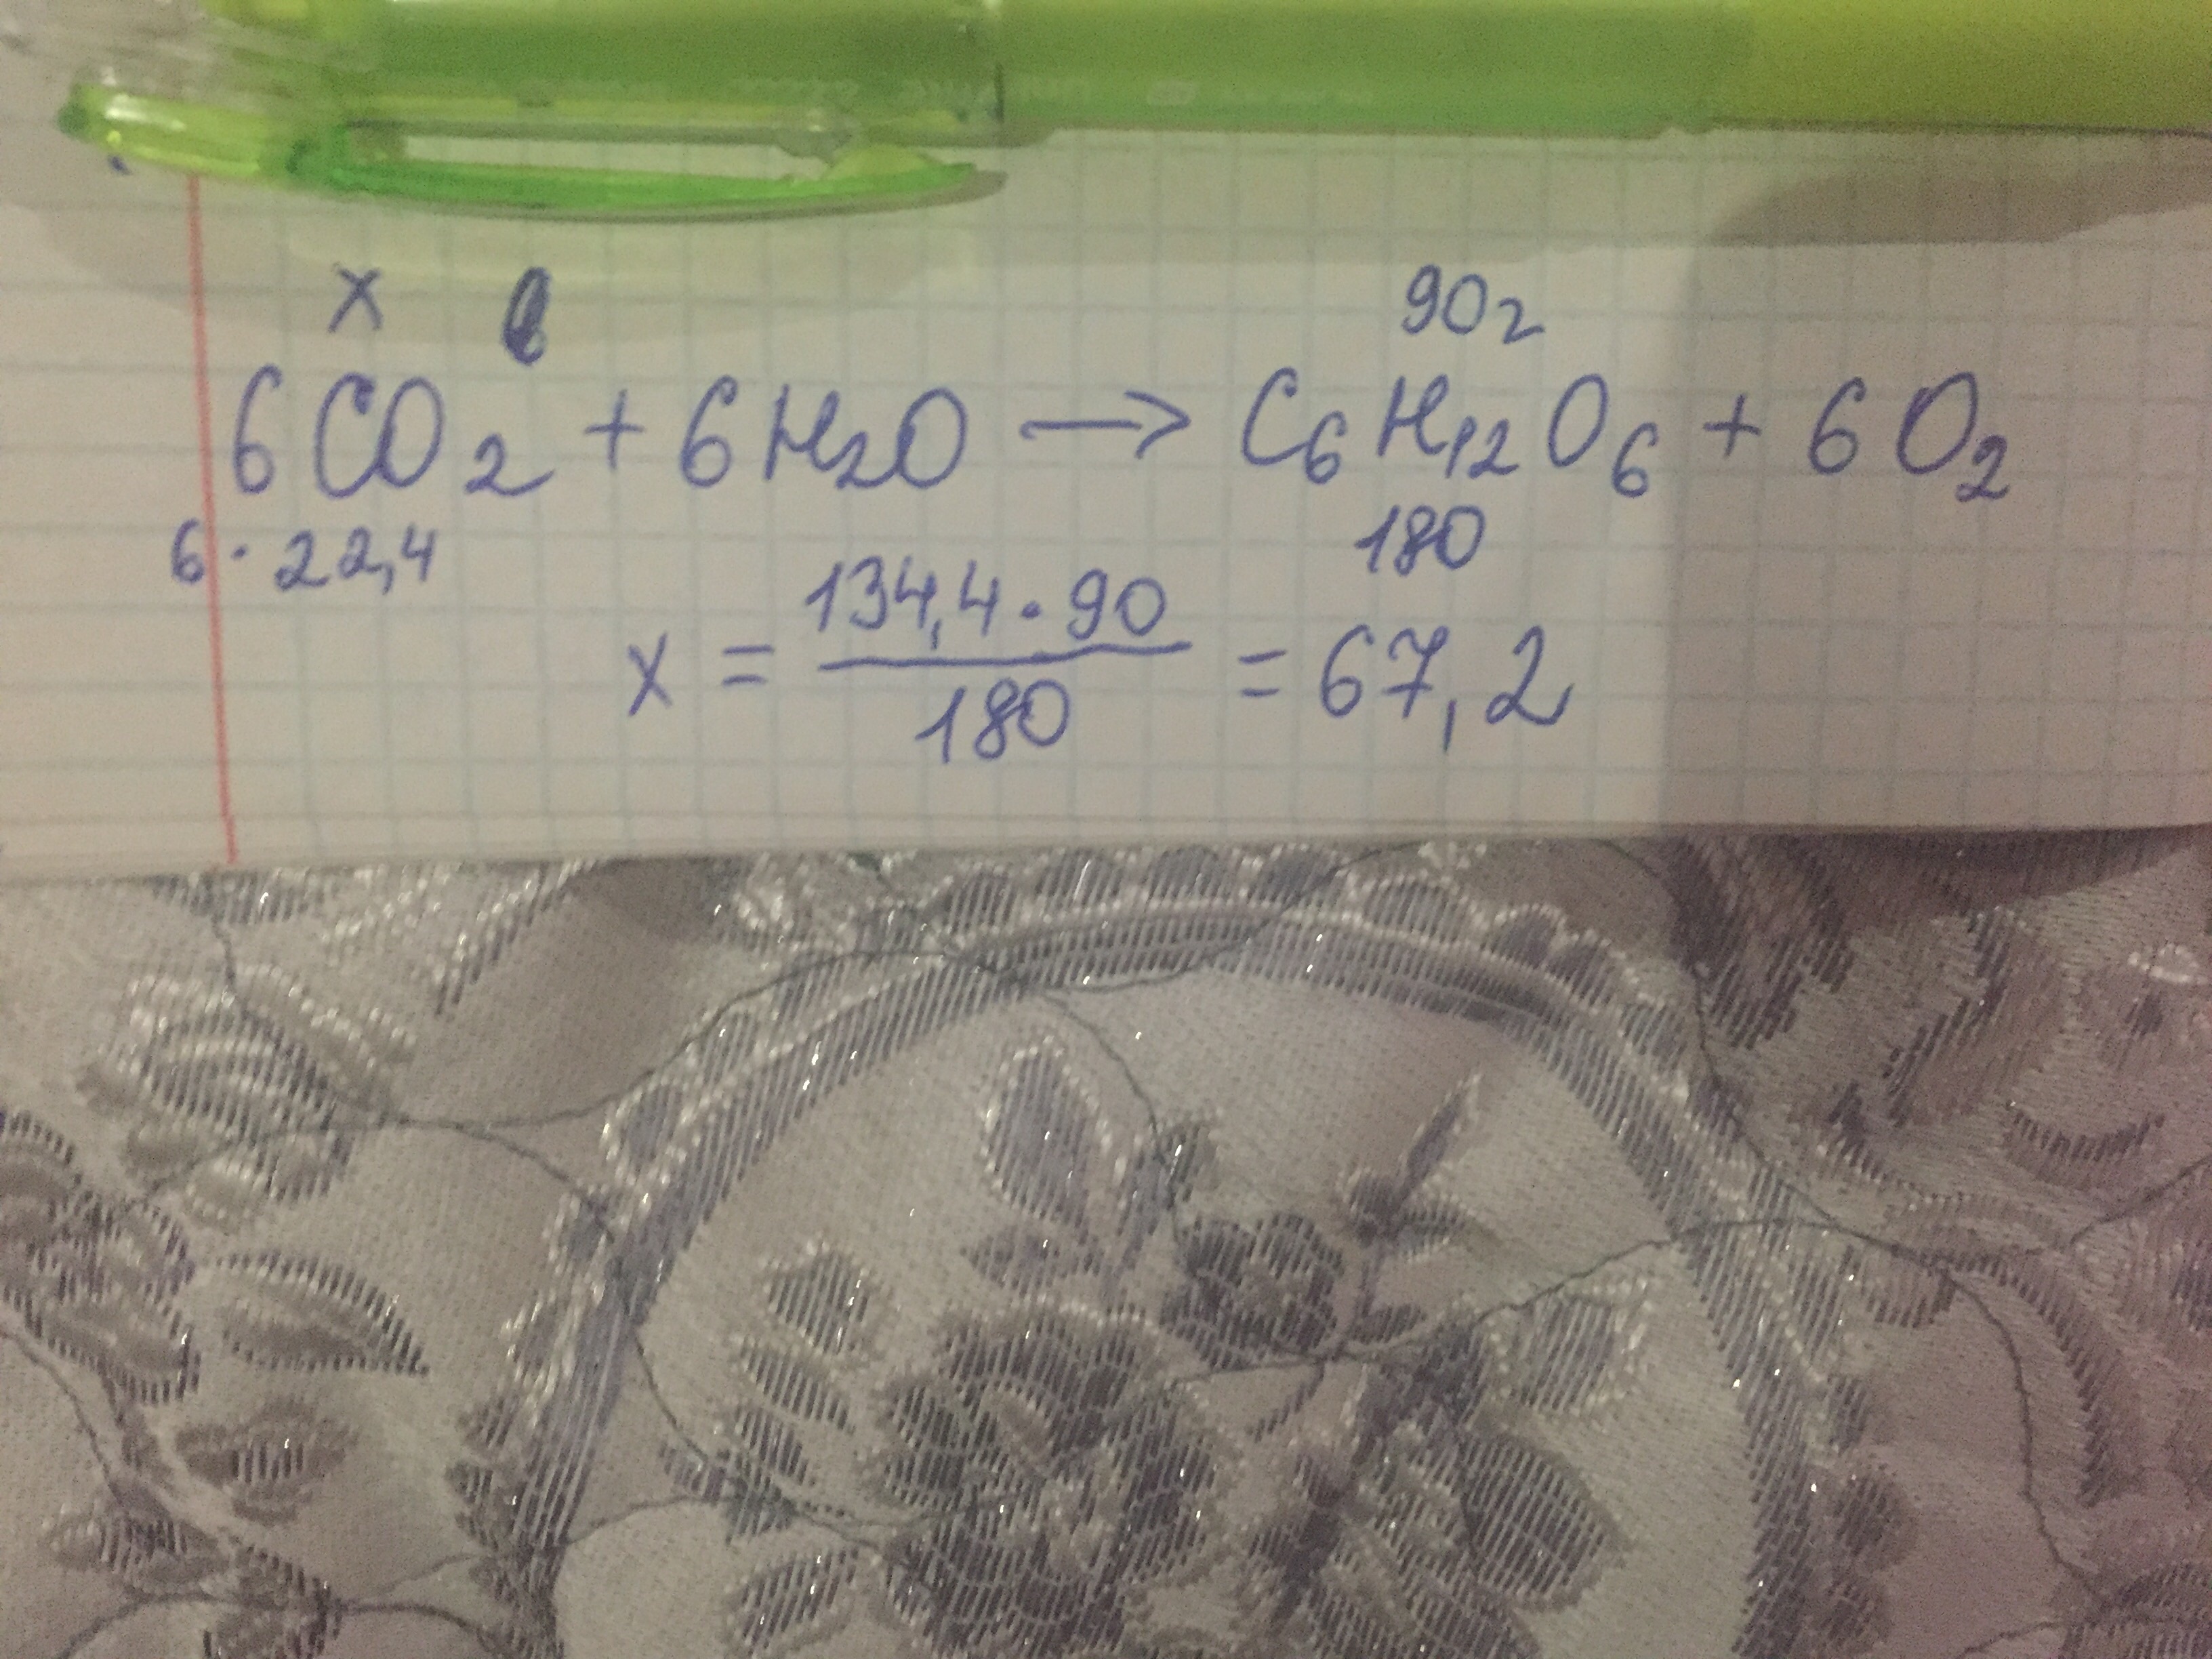 x 90г
6CO₂ + 6H₂O → C₆H₁₂O₆ + 6O₂
6·22,4 180
x = 134,4·90/180 = 67,2